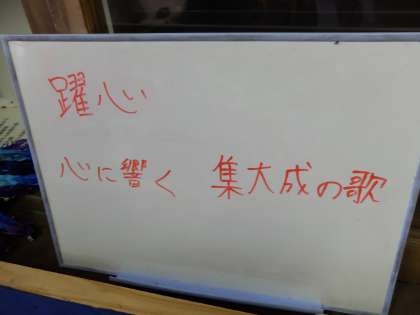 躍心
心に響く 集大成の歌